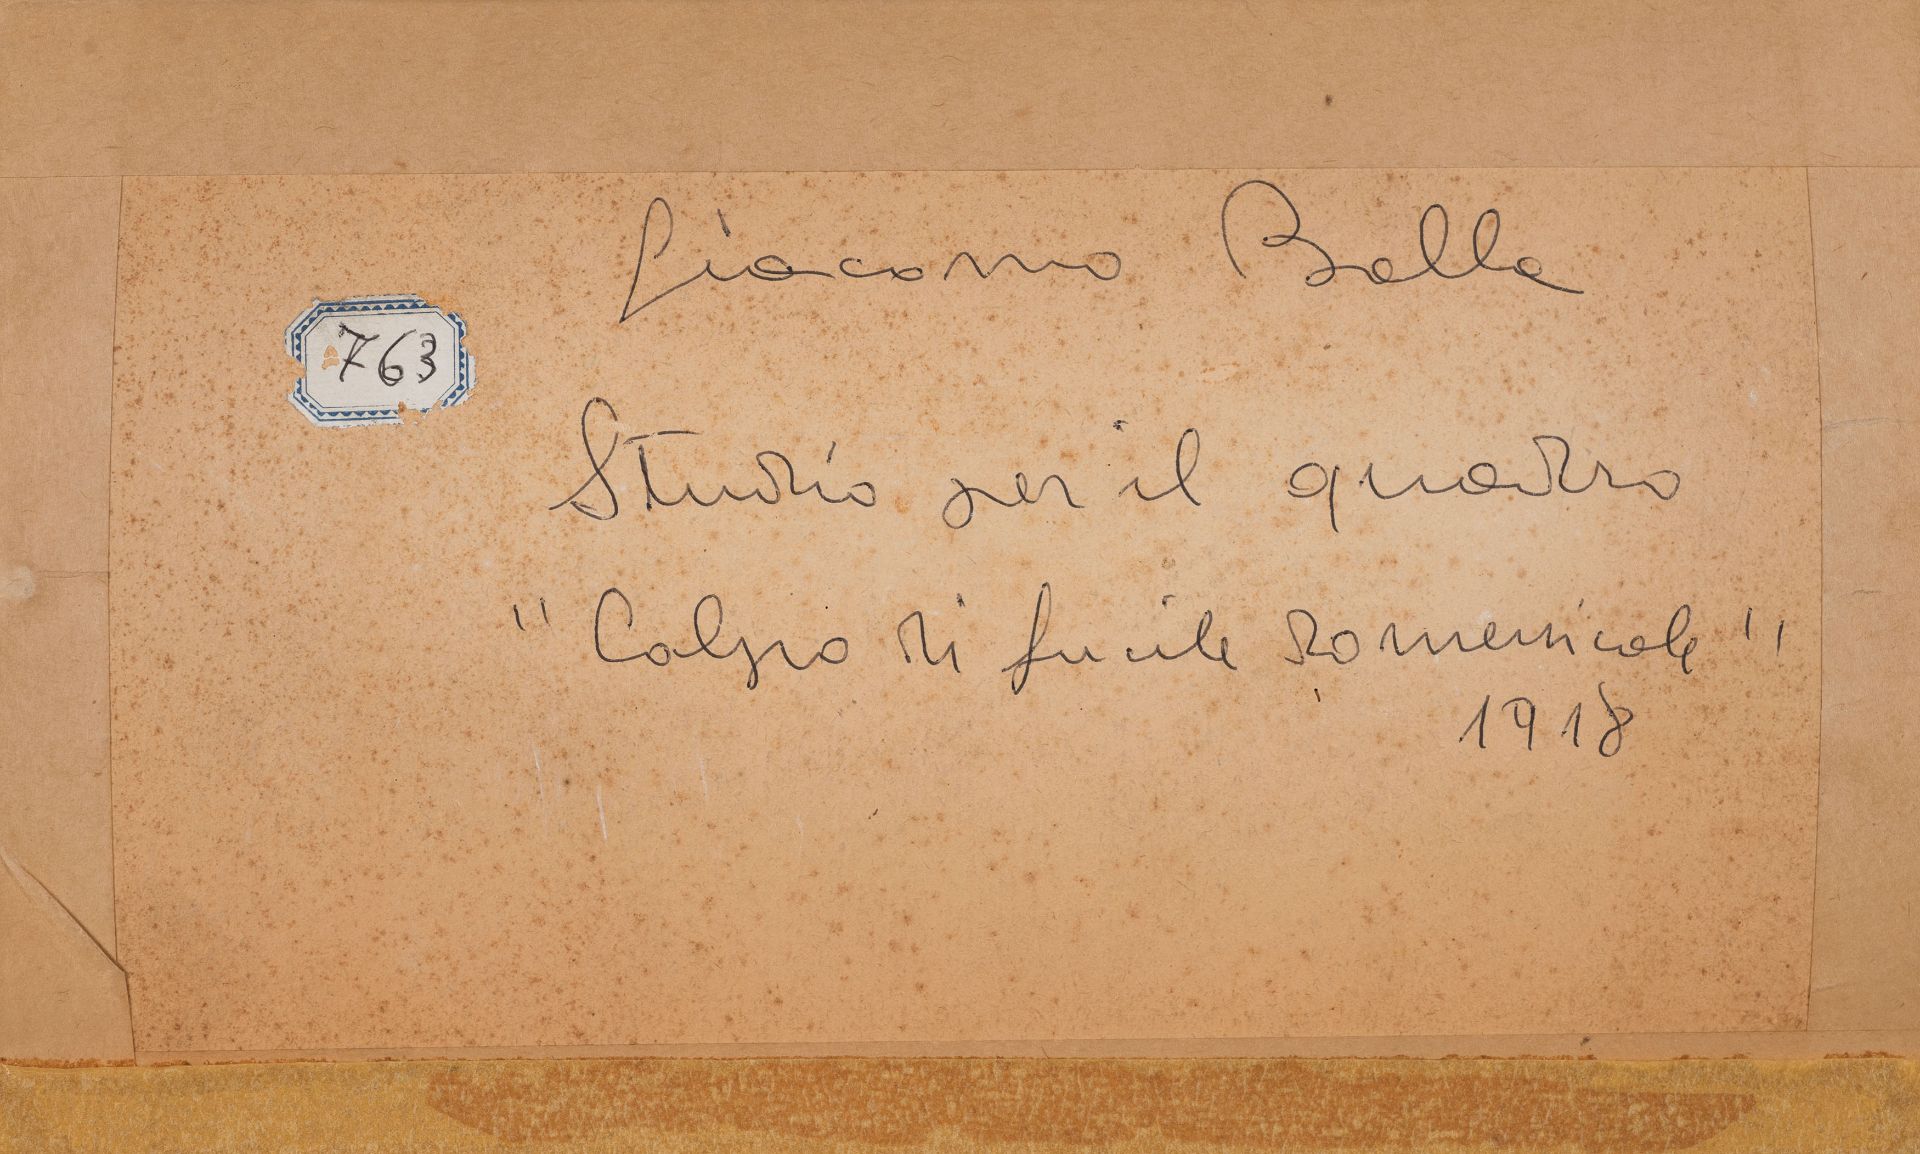 Giacomo Balla
763
Studio per il quadro
"Colpo di fucile domenicale"
1918